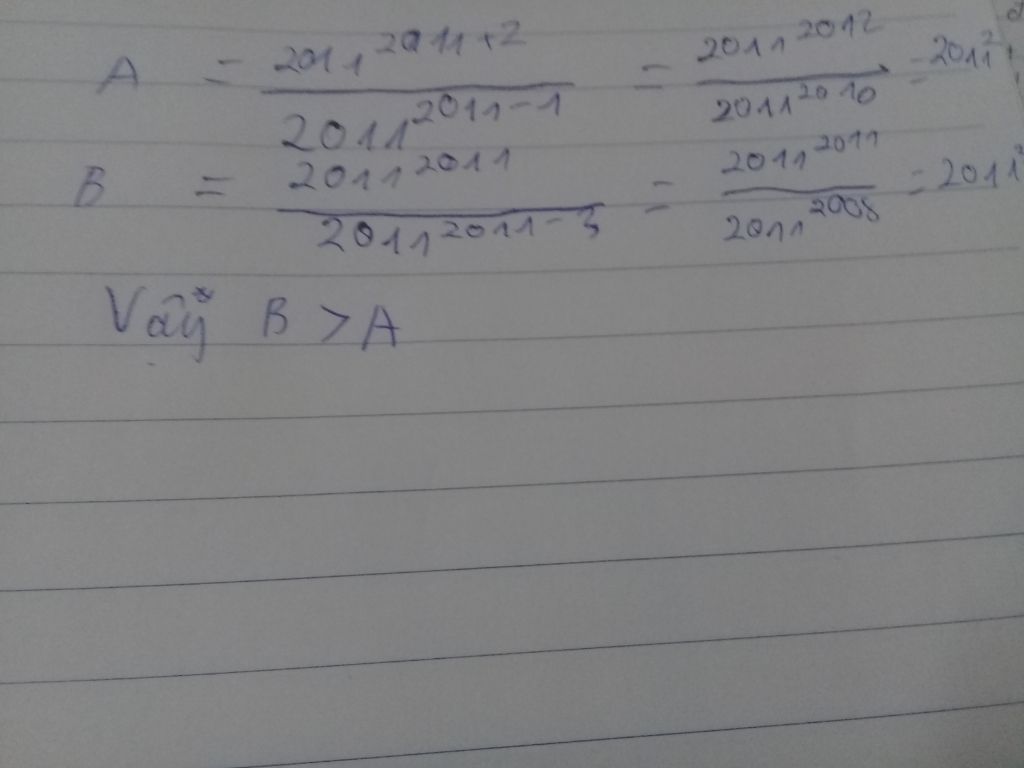 A = 2011^2011+2 / 2011^2011-1 = 2011^2012 / 2011^2010 = 2011^2
B = 2011^2011 / 2011^2011-3 = 2011^2011 / 2011^2008 = 2011^3
Vậy B > A